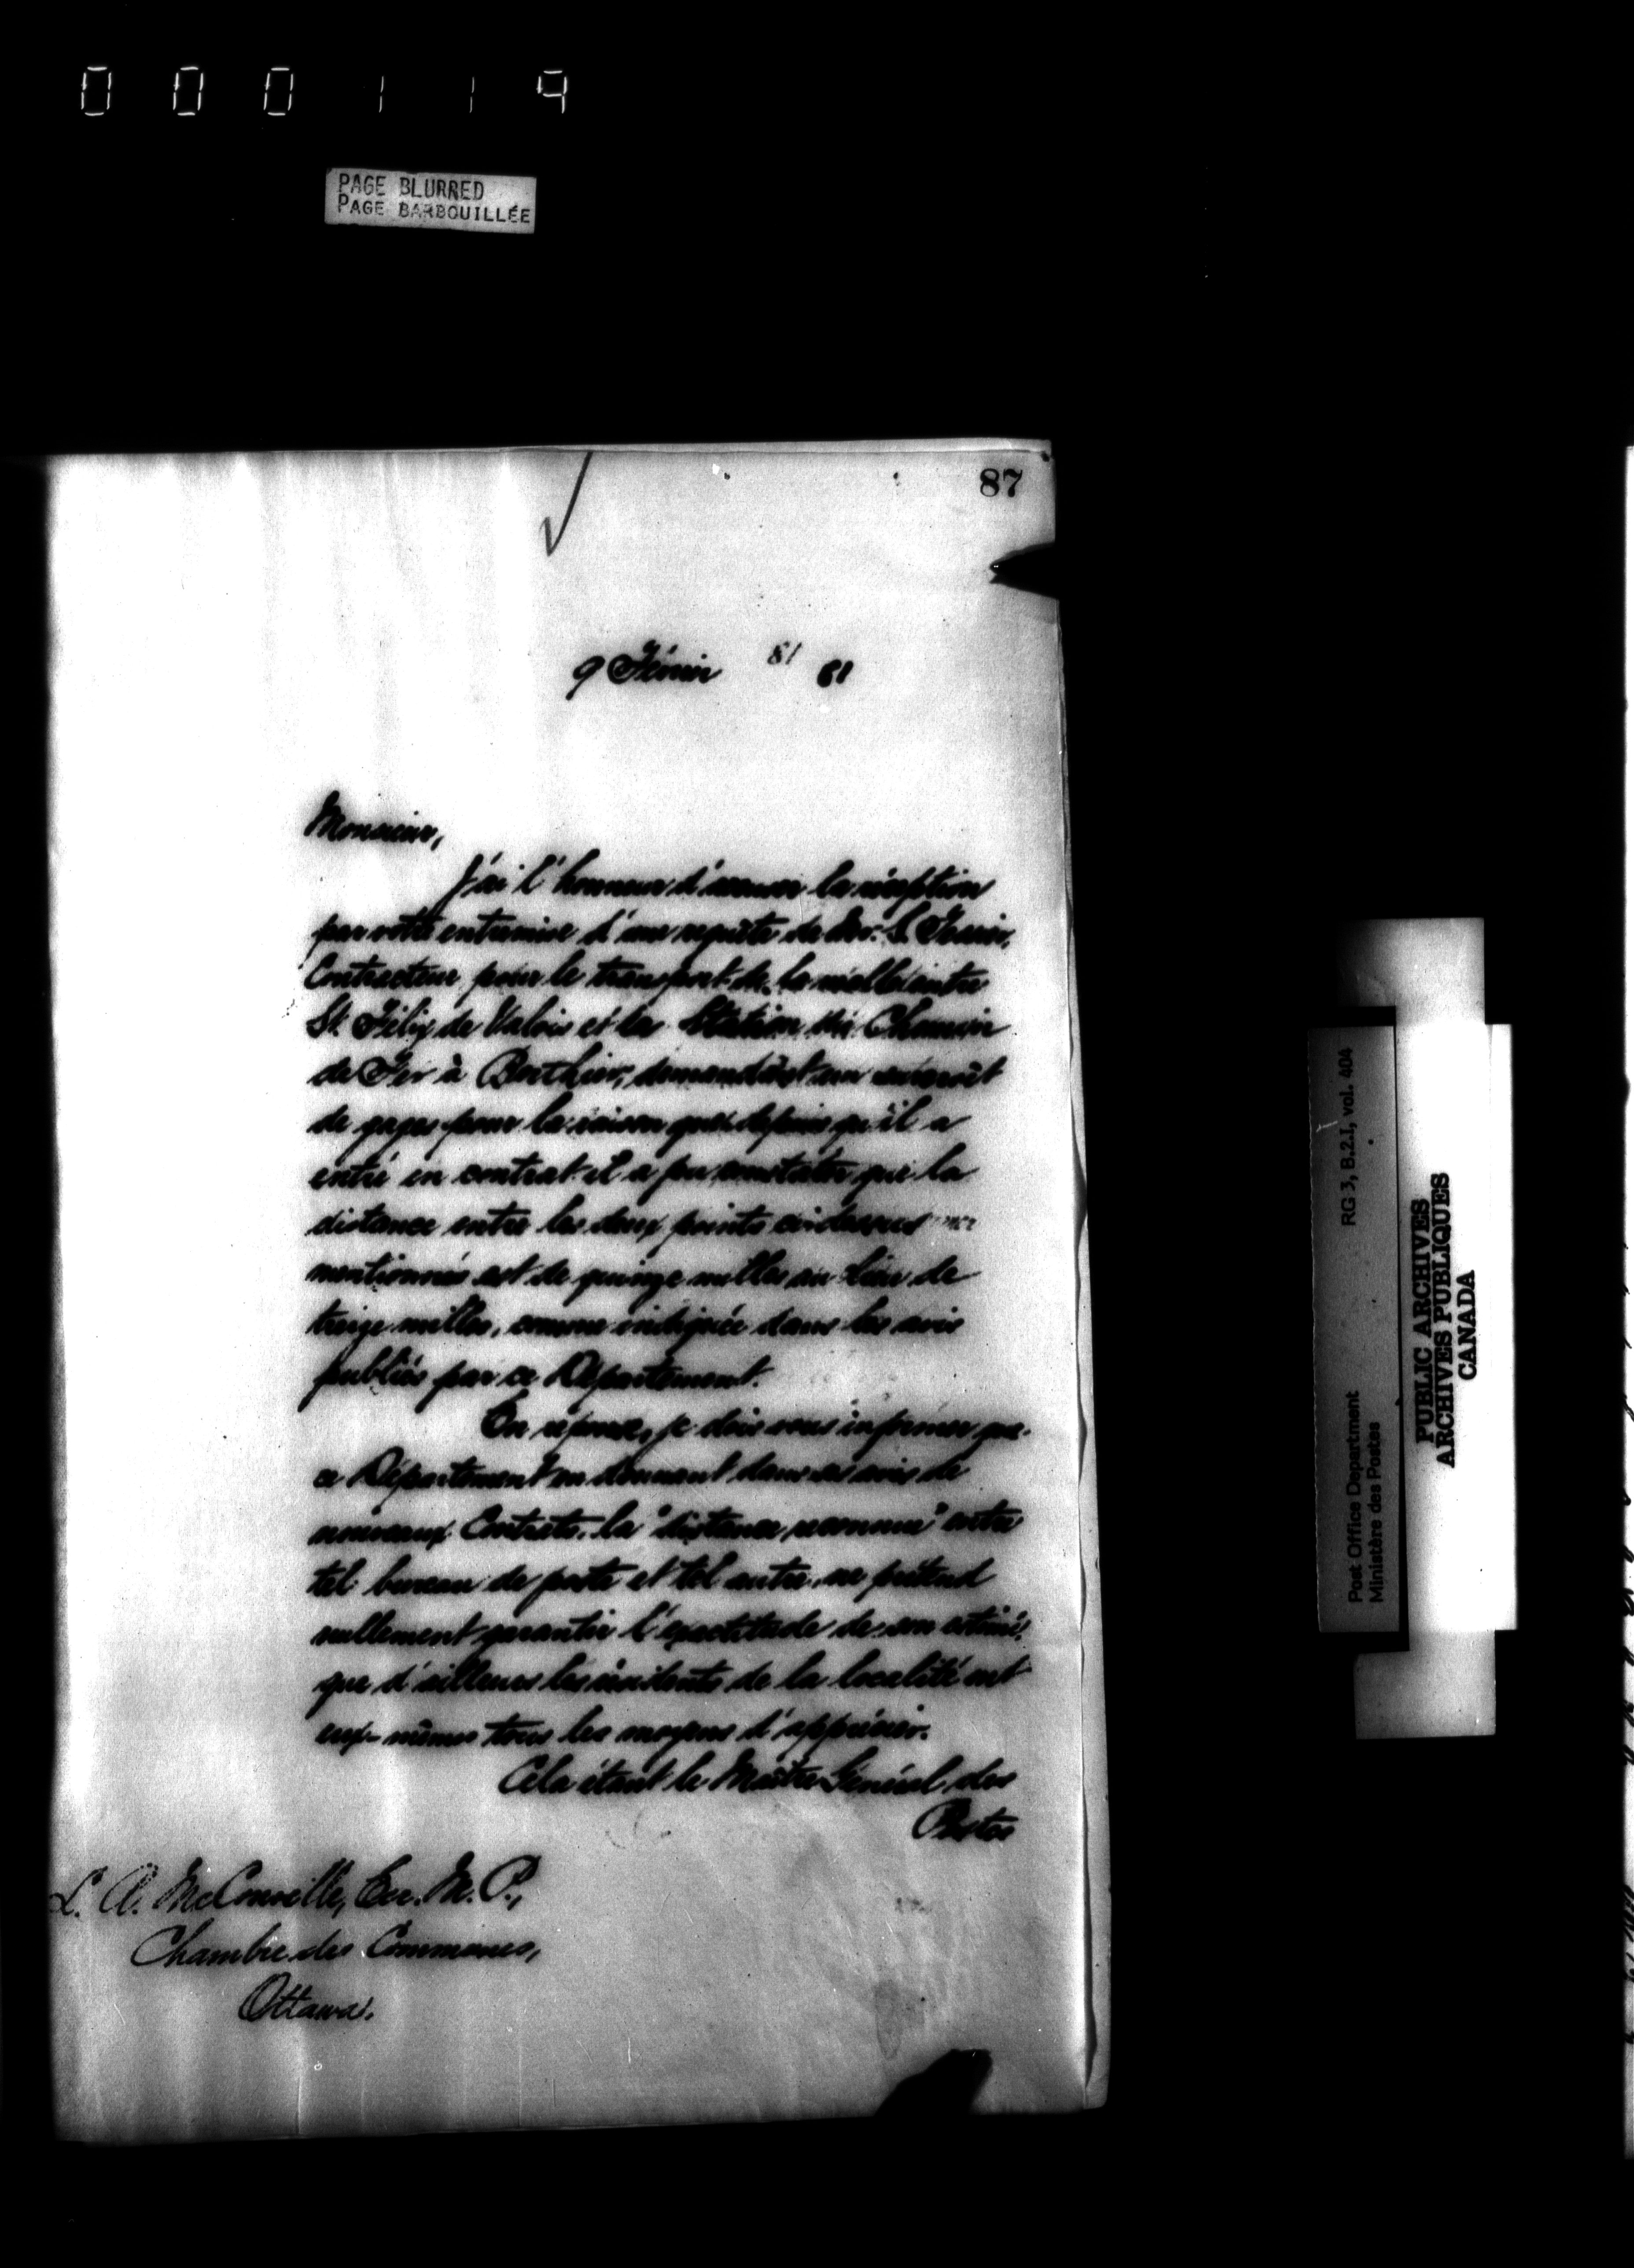 000119
PAGE BLURRED
PAGE BARBOUILLÉE
87
9 Février 81 81
Monsieur,
J'ai l'honneur d'accuser la réception
par votre entremise d'une requête de
Contracteur pour le transport de la malle entre
St. Félix de Valois et la Station du Chemin
de Fer à Berthier, demandant un surcroît
de gages pour la raison que depuis qu'il a
entré en contrat il a pu constater que la
distance entre les deux points ci-dessus
mentionnés est de quinze milles au lieu de
treize milles, comme indiquée dans les avis
publiés par ce Département.
En réponse, je dois vous informer que
ce Département en donnant dans ses avis de
nouveaux Contrats, la "distance reconnue" entre
tel bureau de poste et tel autre, ne prétend
nullement garantir l'exactitude de son estimé,
que d'ailleurs les résidents de la localité ont
eux-mêmes tous les moyens d'apprécier.
Cela étant le Maître Général des
Postes
L. A. McConville, Ecr. M. P.,
Chambre des Communes,
Ottawa.
Post Office Department RG 3, B.2.1, vol. 404
Ministère des Postes
PUBLIC ARCHIVES
ARCHIVES PUBLIQUES
CANADA